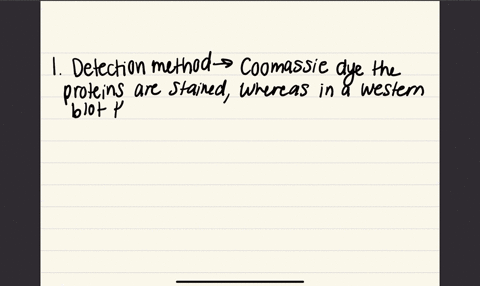 1. Detection method → Coomassie dye the
proteins are stained, whereas in a western
blot